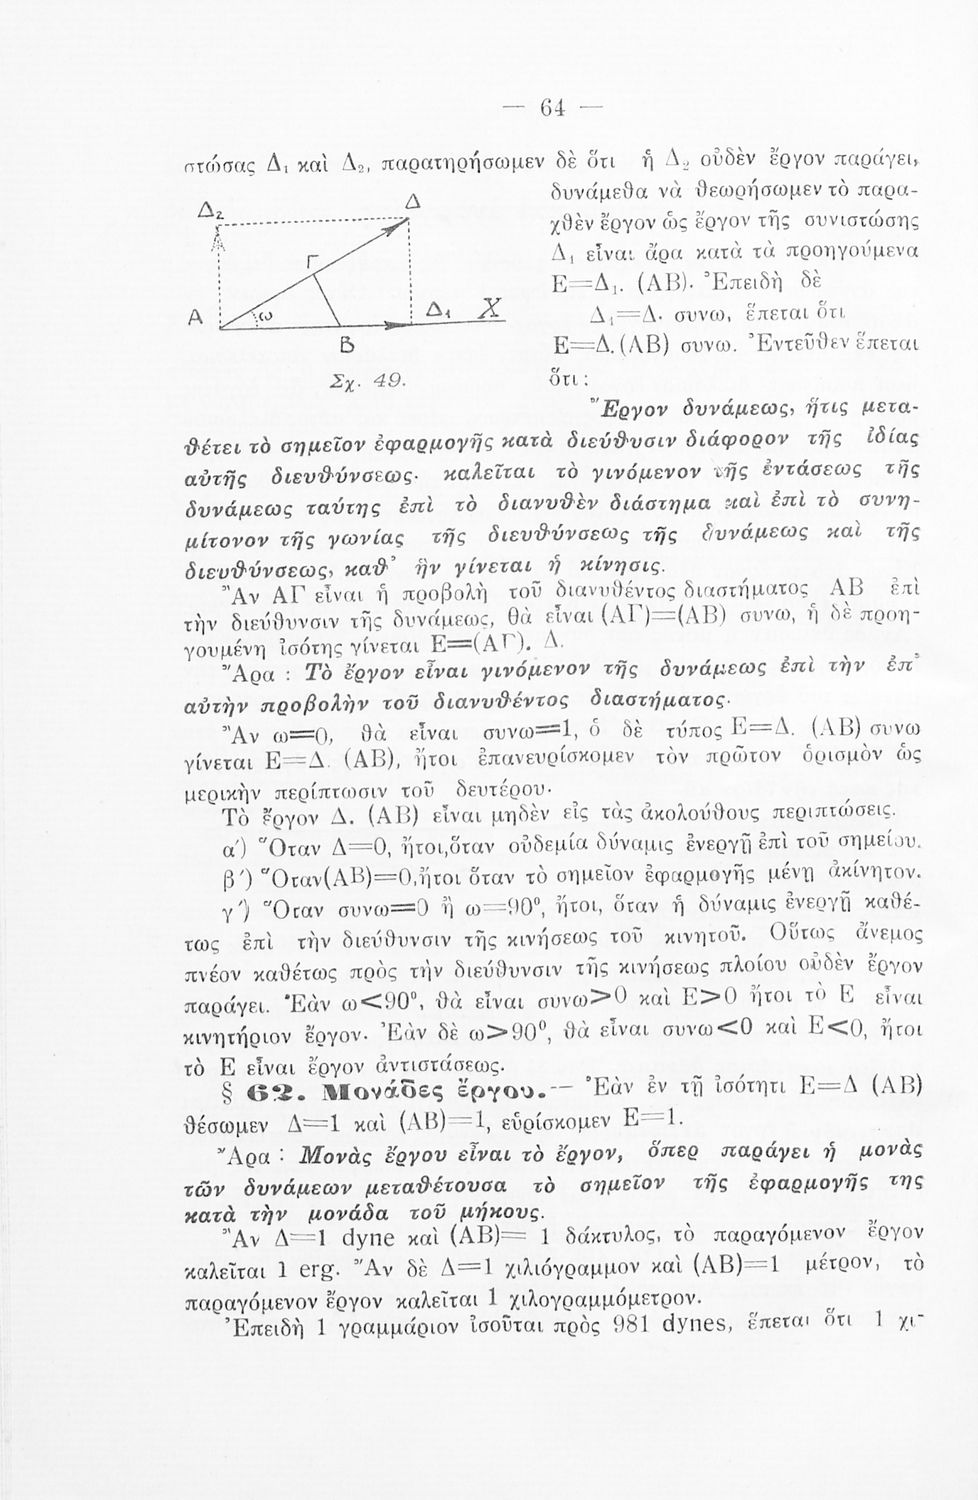 — 64 —
στώσας Δ₁ καὶ Δ₂, παρατηρήσωμεν δὲ ὅτι ἡ Δ₂ οὐδὲν ἔργον παράγει,
δυνάμεθα νὰ θεωρήσωμεν τὸ παρα-
χθὲν ἔργον ὡς ἔργον τῆς συνιστώσης
Δ₁ εἶναι ἄρα κατὰ τὰ προηγούμενα
Ε=Δ₁. (ΑΒ). Ἐπειδὴ δὲ
Δ₁=Δ. συνω, ἕπεται ὅτι
Ε=Δ.(ΑΒ) συνω. Ἐντεῦθεν ἕπεται
ὅτι :
Δ₂
Δ
Γ
Α
ω
Δ₁
Χ
Β
Σχ. 49.
Ἔργον δυνάμεως, ἥτις μετα-
θέτει τὸ σημεῖον ἐφαρμογῆς κατὰ διεύθυσιν διάφορον τῆς ἰδίας
αὐτῆς διευθύνσεως. καλεῖται τὸ γινόμενον τῆς ἐντάσεως τῆς
δυνάμεως ταύτης ἐπὶ τὸ διανυθὲν διάστημα καὶ ἐπὶ τὸ συνη-
μίτονον τῆς γωνίας τῆς διευθύνσεως τῆς δυνάμεως καὶ τῆς
διευθύνσεως, καθ' ἣν γίνεται ἡ κίνησις.
Ἂν ΑΓ εἶναι ἡ προβολὴ τοῦ διανυθέντος διαστήματος ΑΒ ἐπὶ
τὴν διεύθυνσιν τῆς δυνάμεως, θὰ εἶναι (ΑΓ)=(ΑΒ) συνω, ἡ δὲ προη-
γουμένη ἰσότης γίνεται Ε=(ΑΓ). Δ.
Ἄρα : Τὸ ἔργον εἶναι γινόμενον τῆς δυνάμεως ἐπὶ τὴν ἐπ'
αὐτὴν προβολὴν τοῦ διανυθέντος διαστήματος.
Ἂν ω=0, θὰ εἶναι συνω=1, ὁ δὲ τύπος Ε=Δ. (ΑΒ) συνω
γίνεται Ε=Δ. (ΑΒ), ἤτοι ἐπανευρίσκομεν τὸν πρῶτον ὁρισμὸν ὡς
μερικὴν περίπτωσιν τοῦ δευτέρου.
Τὸ ἔργον Δ. (ΑΒ) εἶναι μηδὲν εἰς τὰς ἀκολούθους περιπτώσεις.
α') Ὅταν Δ=0, ἤτοι,ὅταν οὐδεμία δύναμις ἐνεργῇ ἐπὶ τοῦ σημείου.
β') Ὅταν(ΑΒ)=0,ἤτοι ὅταν τὸ σημεῖον ἐφαρμογῆς μένῃ ἀκίνητον.
γ') Ὅταν συνω=0 ἢ ω=90°, ἤτοι, ὅταν ἡ δύναμις ἐνεργῇ καθέ-
τως ἐπὶ τὴν διεύθυνσιν τῆς κινήσεως τοῦ κινητοῦ. Οὕτως ἄνεμος
πνέον καθέτως πρὸς τὴν διεύθυνσιν τῆς κινήσεως πλοίου οὐδὲν ἔργον
παράγει. Ἐὰν ω<90°, θὰ εἶναι συνω>0 καὶ Ε>0 ἤτοι τὸ Ε εἶναι
κινητήριον ἔργον. Ἐὰν δὲ ω>90°, θὰ εἶναι συνω<0 καὶ Ε<0, ἤτοι
τὸ Ε εἶναι ἔργον ἀντιστάσεως.
§ 62. Μονάδες ἔργου.— Ἐὰν ἐν τῇ ἰσότητι Ε=Δ (ΑΒ)
θέσωμεν Δ=1 καὶ (ΑΒ)=1, εὑρίσκομεν Ε=1.
Ἄρα : Μονὰς ἔργου εἶναι τὸ ἔργον, ὅπερ παράγει ἡ μονὰς
τῶν δυνάμεων μεταθέτουσα τὸ σημεῖον τῆς ἐφαρμογῆς της
κατὰ τὴν μονάδα τοῦ μήκους.
Ἂν Δ=1 dyne καὶ (ΑΒ)= 1 δάκτυλος, τὸ παραγόμενον ἔργον
καλεῖται 1 erg. Ἂν δὲ Δ=1 χιλιόγραμμον καὶ (ΑΒ)=1 μέτρον, τὸ
παραγόμενον ἔργον καλεῖται 1 χιλογραμμόμετρον.
Ἐπειδὴ 1 γραμμάριον ἰσοῦται πρὸς 981 dynes, ἕπεται ὅτι 1 χι-